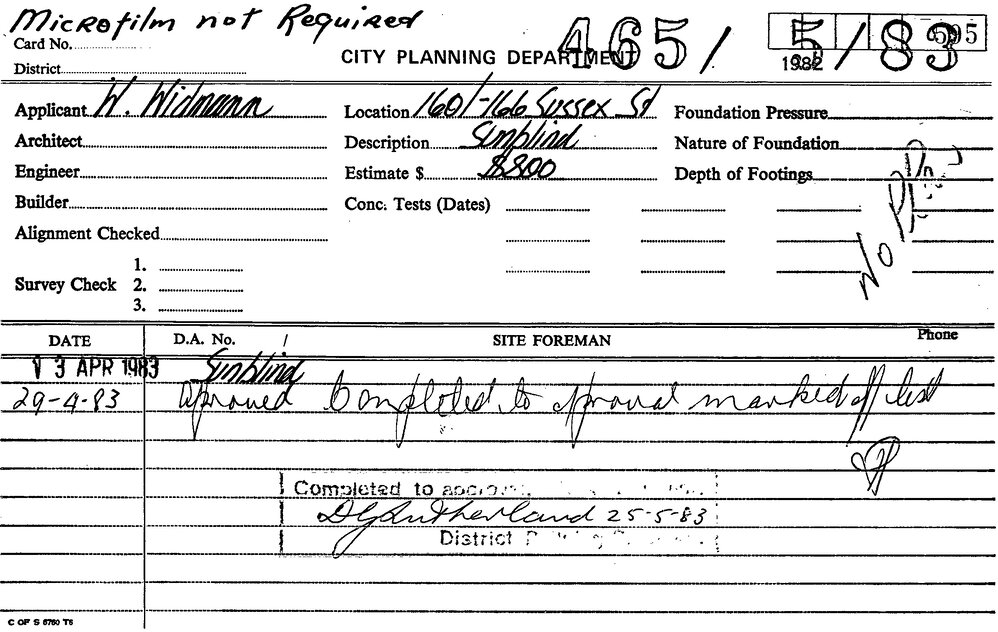 Microfilm not Required
Card No.
District
CITY PLANNING DEPARTMENT
465/
5/83
1982
Applicant W. Widmann
Location 160/-166 Sussex St
Foundation Pressure
Architect
Description Sunblind
Nature of Foundation
Engineer
Estimate $ $800
Depth of Footings
Builder
Conc. Tests (Dates)
Alignment Checked
No
Survey Check
1.
2.
3.
DATE
D.A. No. /
SITE FOREMAN
Phone
13 APR 1983
Sunblind
29-4-83 Aproved Completed to aproval marked off list
Completed to
DGSutherland 25-5-83
District
C OF S 6760 T6